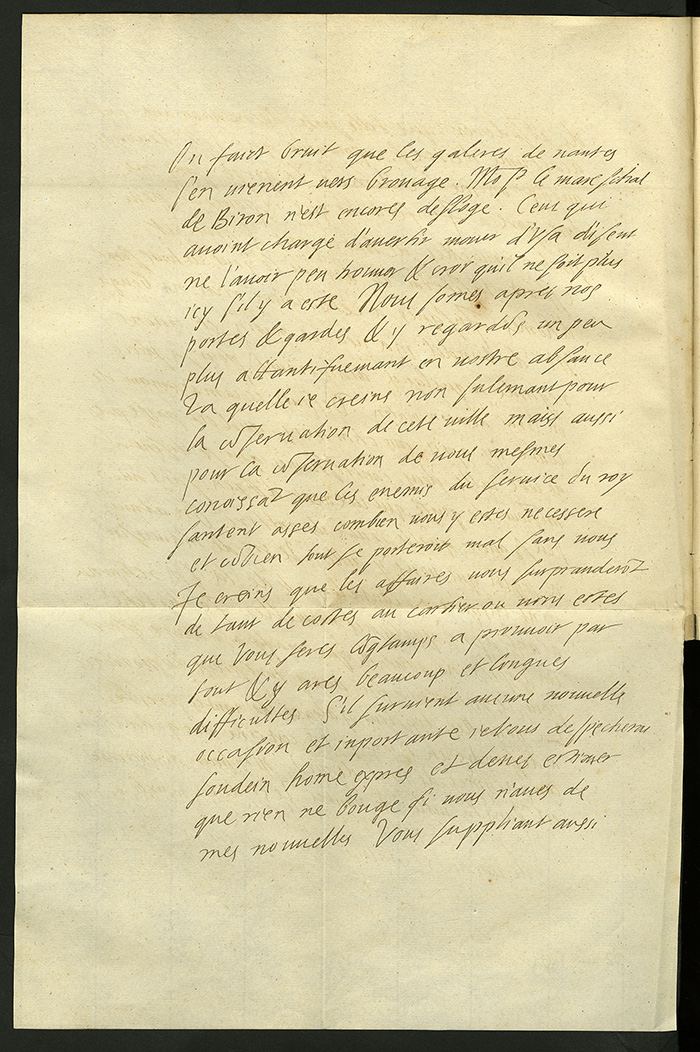 On faict bruit que les galeres de nantes
s'en vienent vers brouage. Mosr le mareschal
de Biron n'est encores desloge. Ceus qui
avoint charge d'avertir d'Usa disent
ne l'avoir peu trouver & croi qu'il ne soit plus
icy s'il y a este Nous somes apres nos
portes & gardes & y regardõs un peu
plus attantifvemant en vostre absance
La quelle ie creins non sulemant pour
la cõservation de cete ville mais aussi
pour la cõservation de vous mesmes
conoissãt que les enemis du service du roy
santent asses combien vous y estes necessere
et cõbien tout se porteroit mal sans vous
Je creins que les affaires vous surpranderõt
de tant de costes au cartier ou vous estes
que vous seres lõgtamps a prouvoir par
tout & y ares beaucoup et longues
difficultes S'il survient aucune nouvelle
occasion et inportante ie vous despecherai
soudein home expres et deves estimer
que rien ne bouge si vous n'aves de
mes nouvelles Vous suppliant aussi